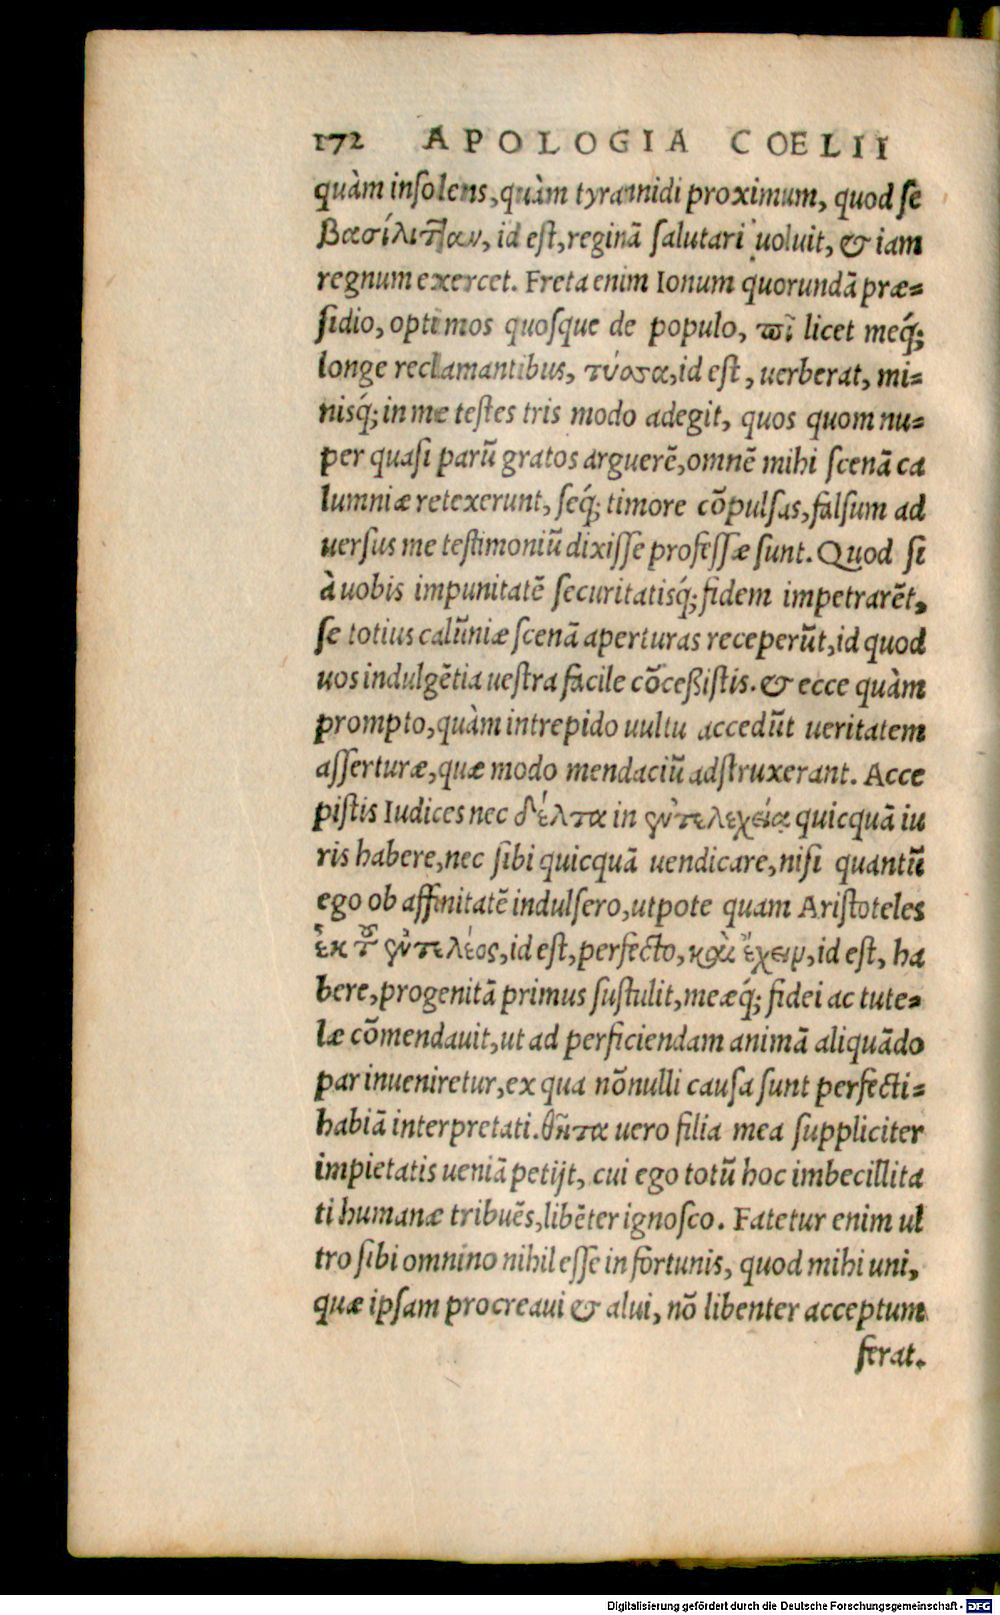 172 APOLOGIA COELII
quàm insolens, quàm tyrannidi proximum, quod se
id est, reginā salutari uoluit, & iam
regnum exercet. Freta enim Ionum quorundā præ=
sidio, optimos quosque de populo, πῖ licet meq́;
longe reclamantibus, id est, uerberat, mi=
nisq́; in me testes tris modo adegit, quos quom nu=
per quasi parū gratos arguerē, omnē mihi scenā ca
lumniæ retexerunt, seq́; timore cōpulsas, falsum ad
uersus me testimoniū dixisse professæ sunt. Quod si
à uobis impunitatē securitatisq́; fidem impetrarēt,
se totius calūniæ scenā aperturas receperūt, id quod
uos indulgētia uestra facile cōceßistis. & ecce quàm
prompto, quàm intrepido uultu accedūt ueritatem
asserturæ, quæ modo mendaciū adstruxerant. Acce
pistis Iudices nec δέλτα in ἐντελεχείᾳ quicquā iu
ris habere, nec sibi quicquā uendicare, nisi quantū
ego ob affinitatē indulsero, utpote quam Aristoteles
ἐκ τοῦ ἐντελέος, id est, perfecto, καὶ ἔχειν, id est, ha
bere, progenitā primus sustulit, meæq́; fidei ac tute=
læ cōmendauit, ut ad perficiendam animā aliquādo
par inueniretur, ex qua nōnulli causa sunt perfecti=
habiā interpretati. θῆτα uero filia mea suppliciter
impietatis ueniā petijt, cui ego totū hoc imbecillita
ti humanæ tribuēs, libēter ignosco. Fatetur enim ul
tro sibi omnino nihil esse in fortunis, quod mihi uni,
quæ ipsam procreaui & alui, nō libenter acceptum
ferat.
Digitalisierung gefördert durch die Deutsche Forschungsgemeinschaft - DFG